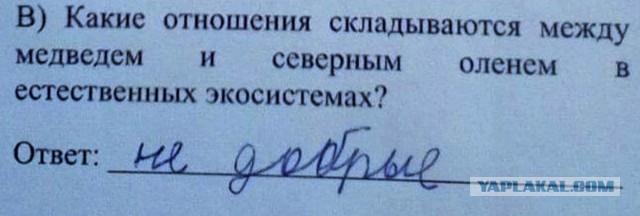 В) Какие отношения складываются между
медведем и северным оленем в
естественных экосистемах?
Ответ: не добрые
YAPLAKAL.COM